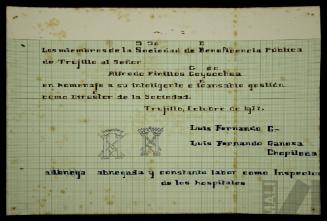 S So E
Los miembros de la Sociedad de Beneficencia Pública
de Trujillo al Señor
G oc
Alfredo Pinillos Goycochea
en homenaje a su inteligente e incansable gestión
como Director de la Sociedad.
Trujillo, Octubre de
Luis Fernando G-
Luis Fernando Ganoza
Chopitea
abnega abnegada y constante labor como Inspector
de los hospitales
MALI